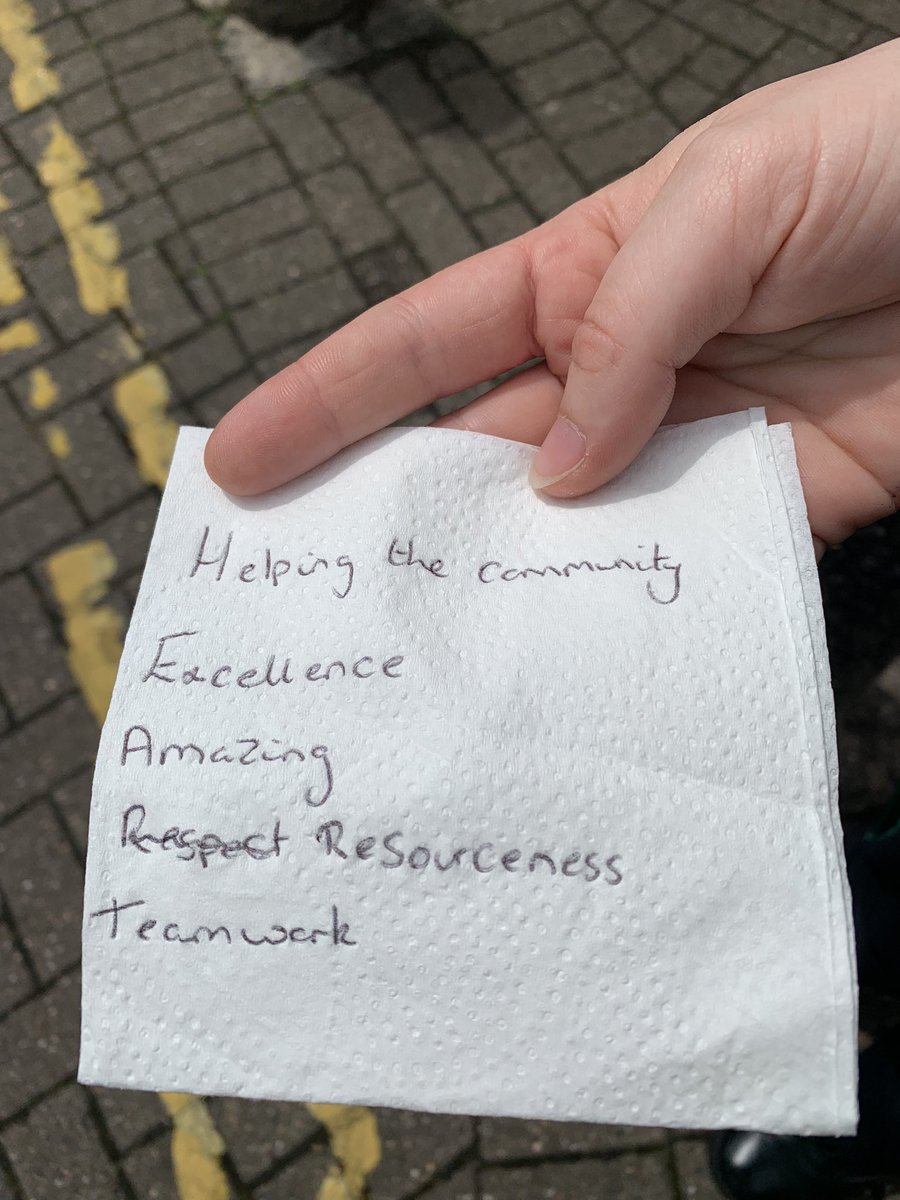 Helping the community
Excellence
Amazing
Respect Resourceness
Teamwork